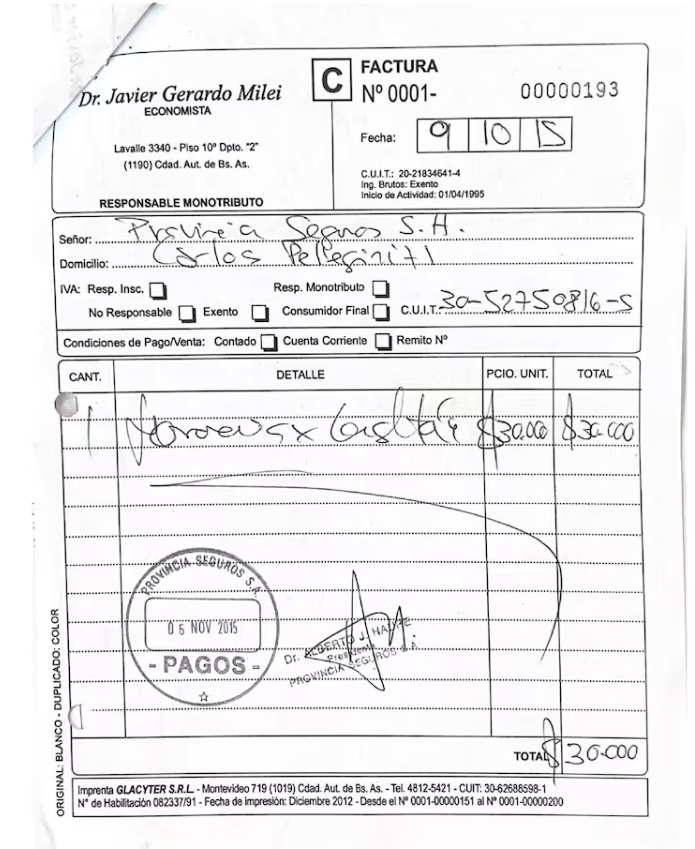 Dr. Javier Gerardo Milei
ECONOMISTA
Lavalle 3340 - Piso 10º Dpto. "2"
(1190) Cdad. Aut. de Bs. As.
RESPONSABLE MONOTRIBUTO
C
FACTURA
Nº 0001- 00000193
Fecha: 9 10 15
C.U.I.T.: 20-21834641-4
Ing. Brutos: Exento
Inicio de Actividad: 01/04/1995
Señor: Provincia Seguros S.A.
Domicilio: Carlos Pellegrini 71
IVA: Resp. Insc. Resp. Monotributo
No Responsable Exento Consumidor Final C.U.I.T. 30-52750816-5
Condiciones de Pago/Venta: Contado Cuenta Corriente Remito Nº
CANT. DETALLE PCIO. UNIT. TOTAL
1 Honorarios x $30.000 $30.000
PROVINCIA SEGUROS S.A.
06 NOV 2015
- PAGOS -
Dr. ALBERTO J.
Presidente
PROVINCIA SEGUROS S.A.
TOTAL $30.000
ORIGINAL: BLANCO - DUPLICADO: COLOR
Imprenta GLACYTER S.R.L. - Montevideo 719 (1019) Cdad. Aut. de Bs. As. - Tel. 4812-5421 - CUIT: 30-62688598-1
N° de Habilitación 082337/91 - Fecha de impresión: Diciembre 2012 - Desde el Nº 0001-00000151 al Nº 0001-00000200